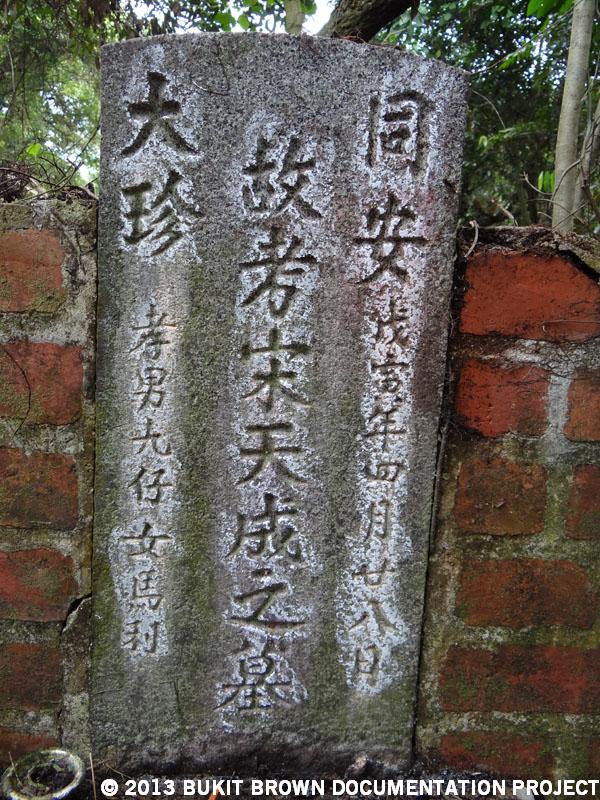 同安
戊寅年四月廿八日
故考宋天成之墓
大珍
孝男九仔女馬利
© 2013 BUKIT BROWN DOCUMENTATION PROJECT